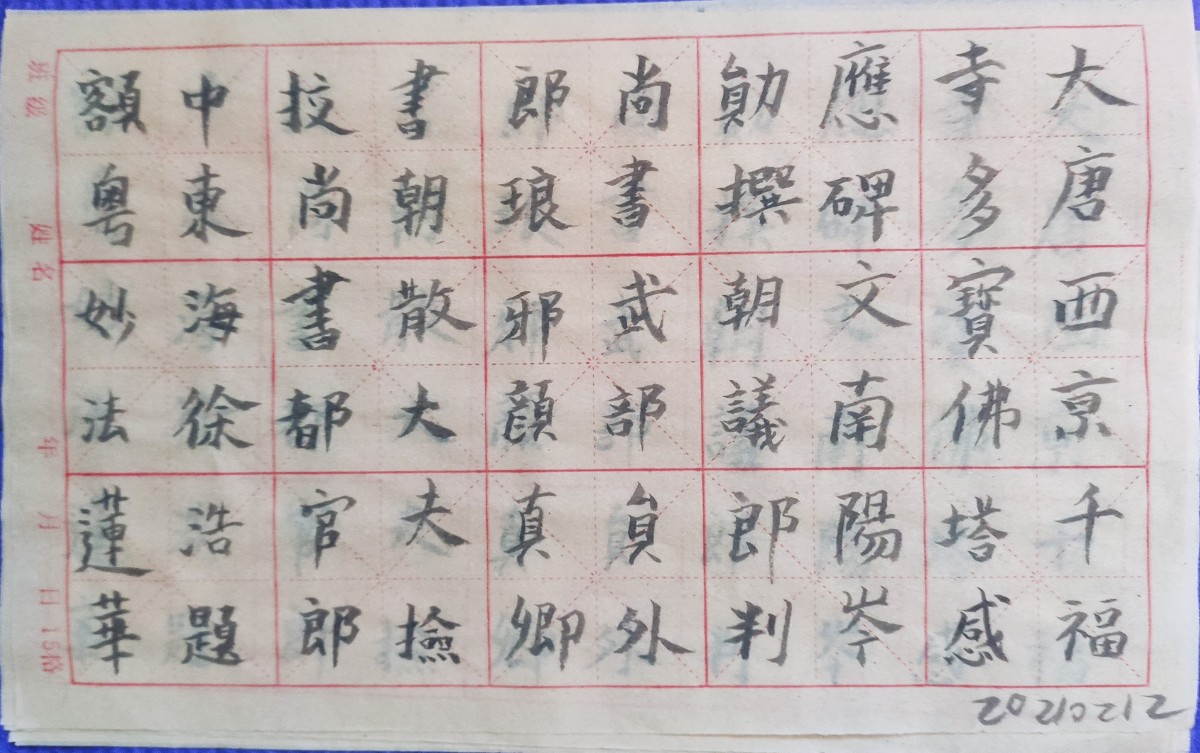 大唐西京千福
寺多寶佛塔感
應碑文南陽岑
勛撰朝議郎判
尚書武部員外
郎琅邪顏真卿
書朝散大夫撿
挍尚書都官郎
中東海徐浩題
額粵妙法蓮華
班级
姓名
年
月
15格
20210212